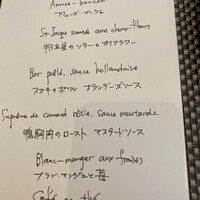 Amuse-bouche
アミューズ・ブーシュ
St-Jacque sautés aux choux-fleurs
帆立貝のソテーとカリフラワー
Bar poêlé, sauce hollandaise
スズキのポワレ オランデーズソース
Suprême de canard rôtie, sauce moutarde
鴨胸肉のロースト マスタードソース
Blanc-manger aux fraises
ブランマンジェと苺
Café ou thé